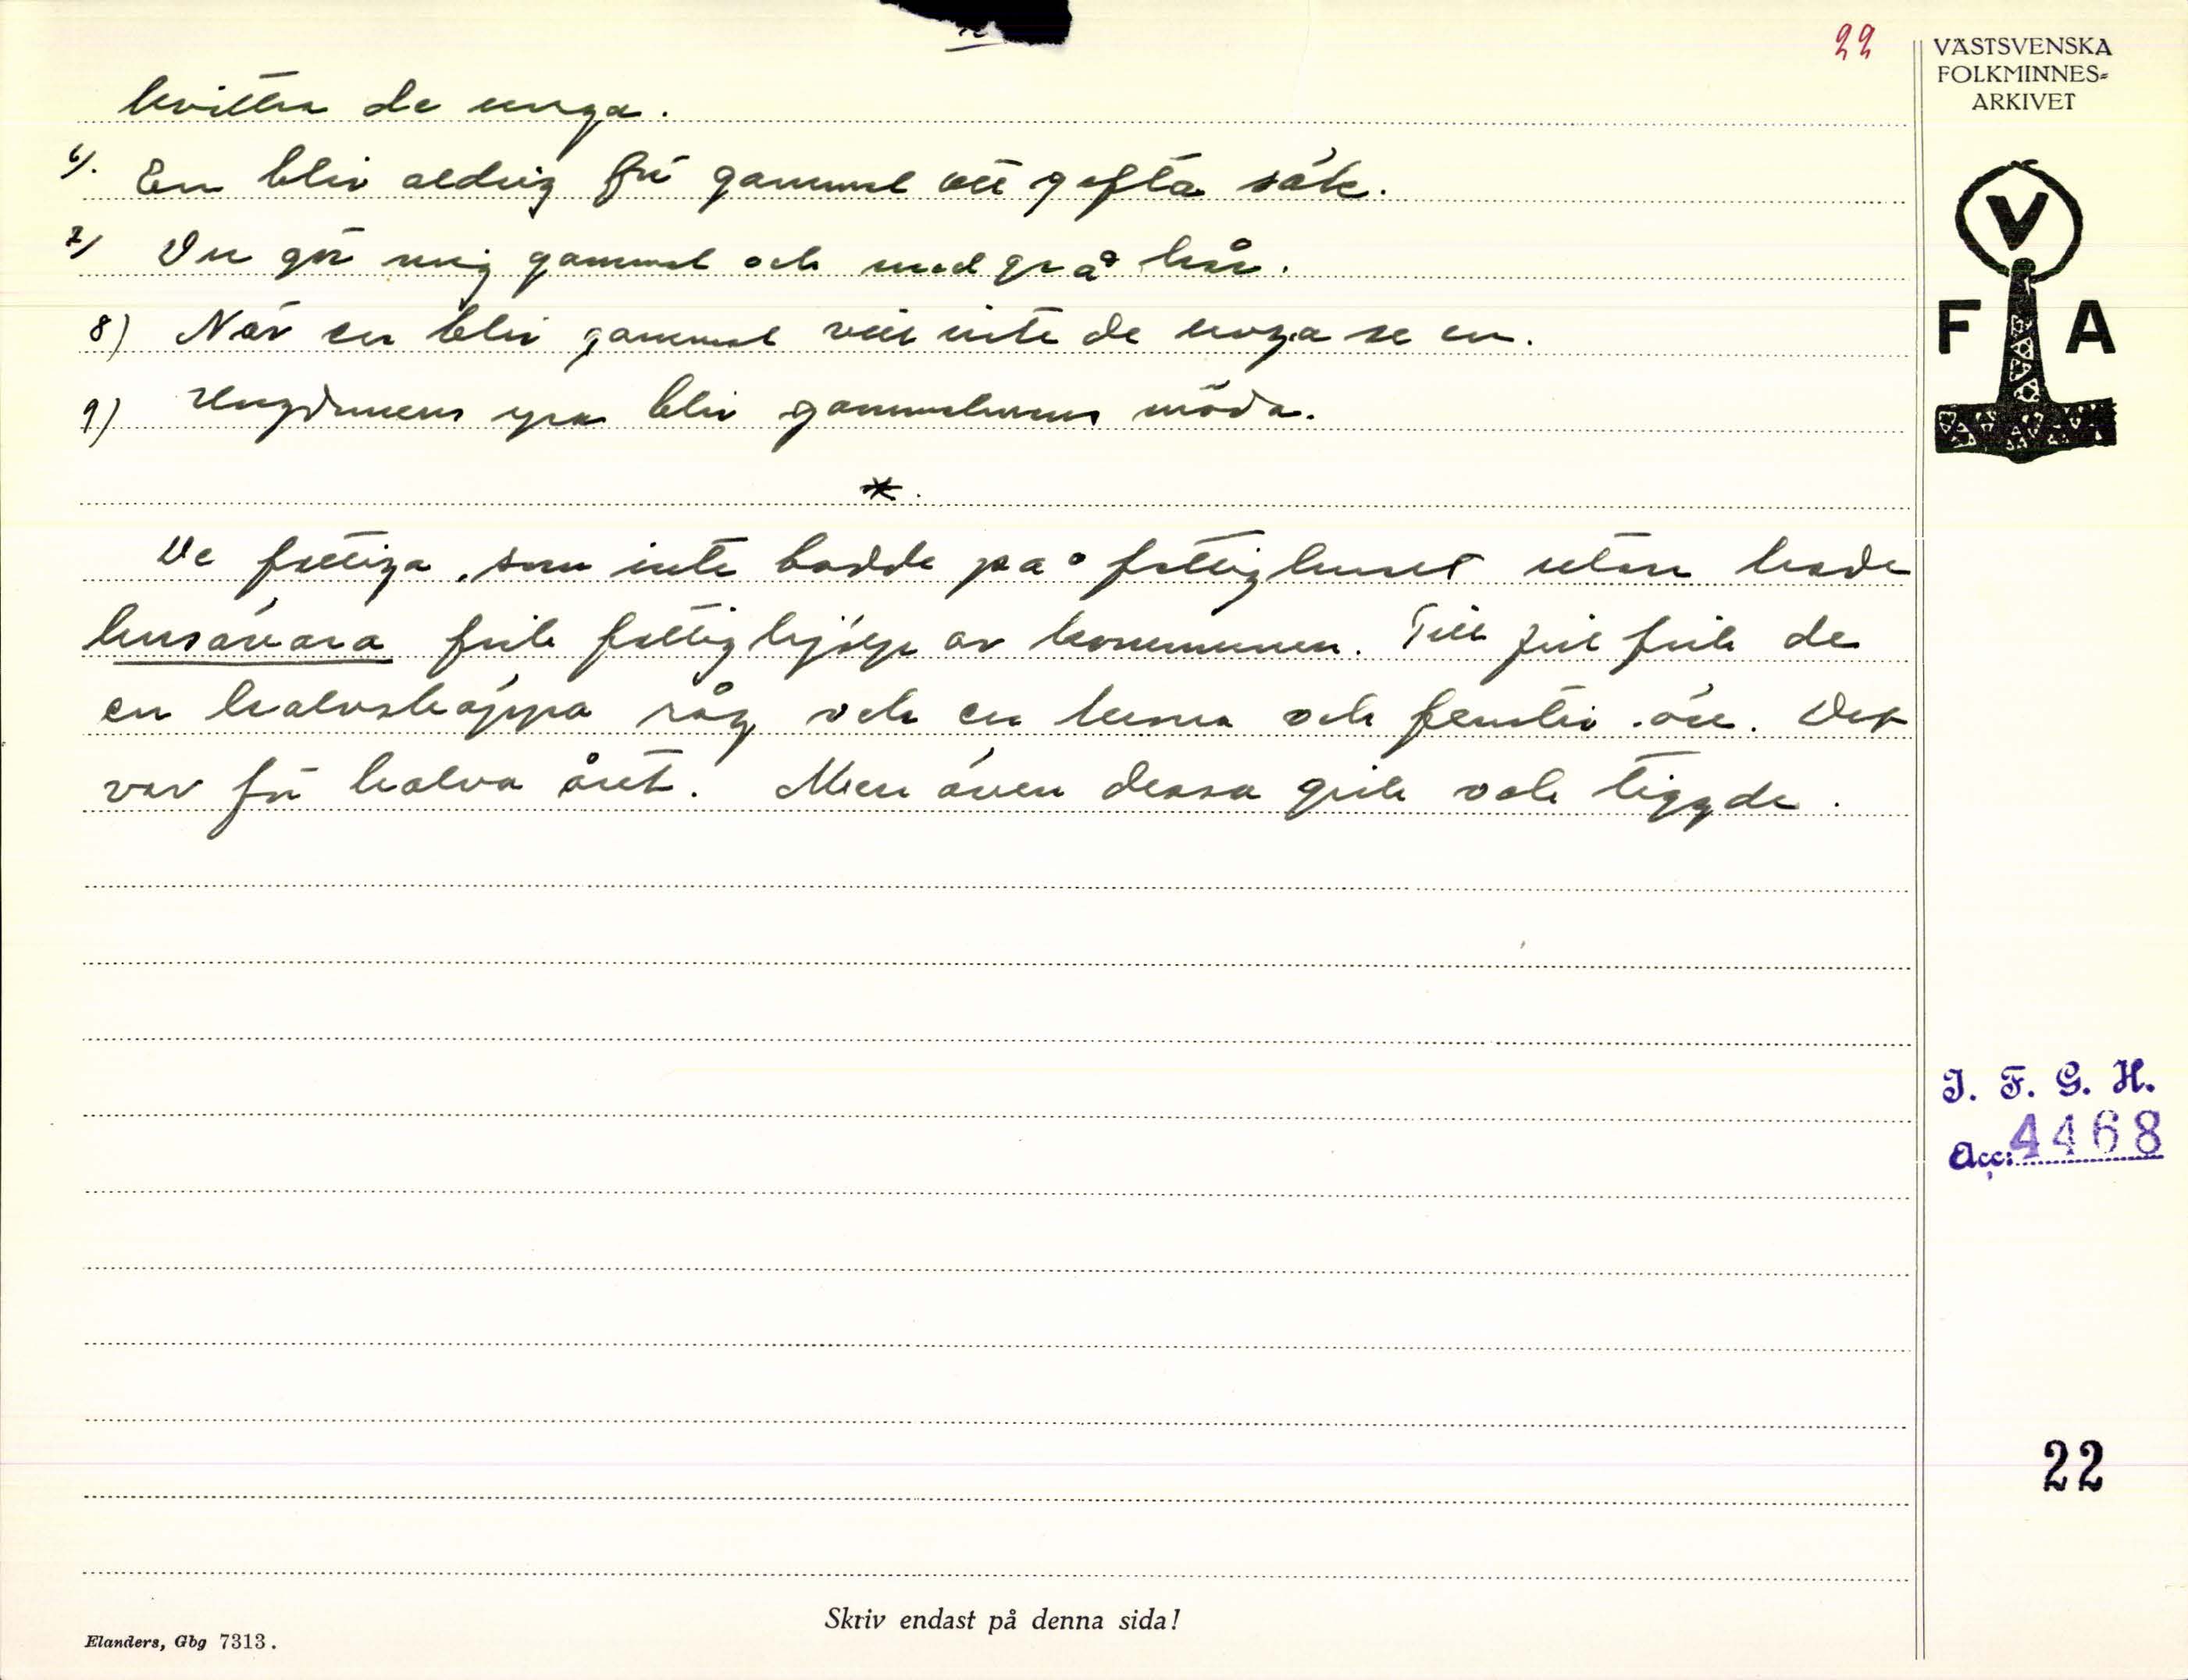 22
VÄSTSVENSKA
FOLKMINNES=
ARKIVET
kvittra de unga.
6). En bliv aldrig för gammal att gifta säk.
7) Du gör mig gammal och med grå hår.
8) När en bliv gammal vill inte de unga se en.
9) Ungdomens yra bliv gammalmans möda.
*.
De fattiga, som inte bodde på fattighuset utan hade
husavara fick fattighjälp av kommunen. Till jul fick de
en halvskäppa råg och en krona och femtio öre. Det
var för halva året. Men även dessa gick och tiggde.
V
F A
I. F. G. H.
Acc: 4468
22
Skriv endast på denna sida!
Elanders, Gbg 7313.